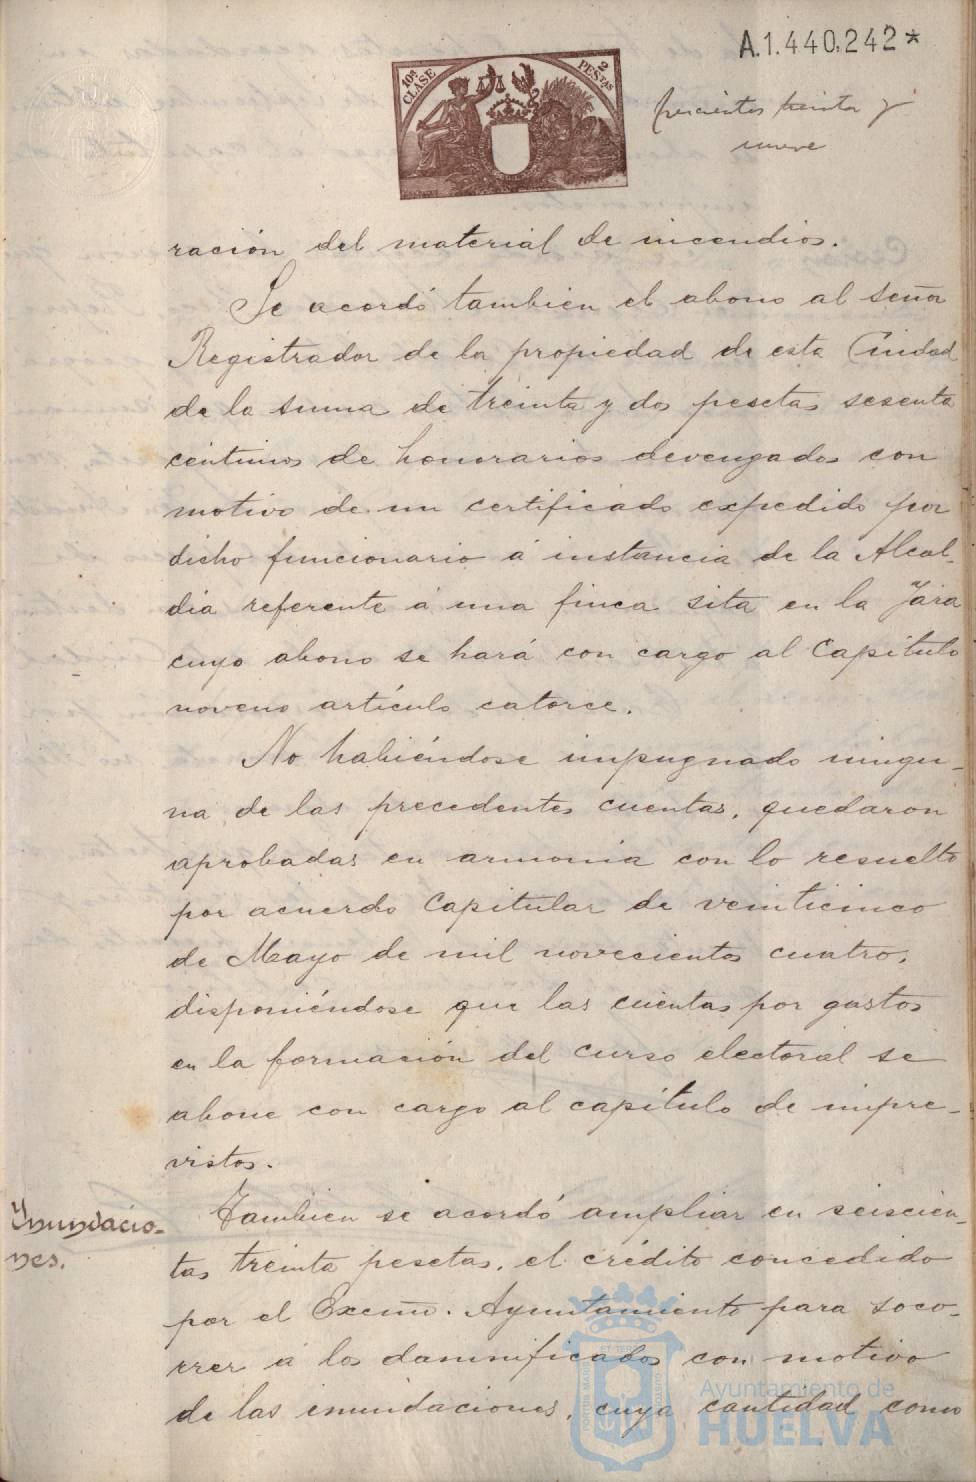 A.1.440.242*
10ª CLASE
2 PESETAS
trescientos treinta y
nueve
ración del material de incendios.
Se acordó tambien el abono al Señor
Registrador de la propiedad de esta Ciudad
de la suma de treinta y dos pesetas sesenta
céntimos de honorarios devengados con
motivo de un certificado expedido por
dicho funcionario á instancia de la Alcal-
dia referente á una finca sita en la Jara
cuyo abono se hará con cargo al Capítulo
noveno artículo catorce.
No habiéndose impugnado ningu-
na de las precedentes cuentas, quedaron
aprobadas en armonia con lo resuelto
por acuerdo Capitular de veinticinco
de Mayo de mil novecientos cuatro,
disponiéndose que las cuentas por gastos
en la formación del curso electoral se
abone con cargo al capítulo de impre-
vistos.
Inundacio-
nes.
Tambien se acordó ampliar en seiscien-
tas treinta pesetas, el crédito concedido
por el Excmo. Ayuntamiento para soco-
rrer á los damnificados con motivo
de las inundaciones, cuya cantidad como
Ayuntamiento de
HUELVA